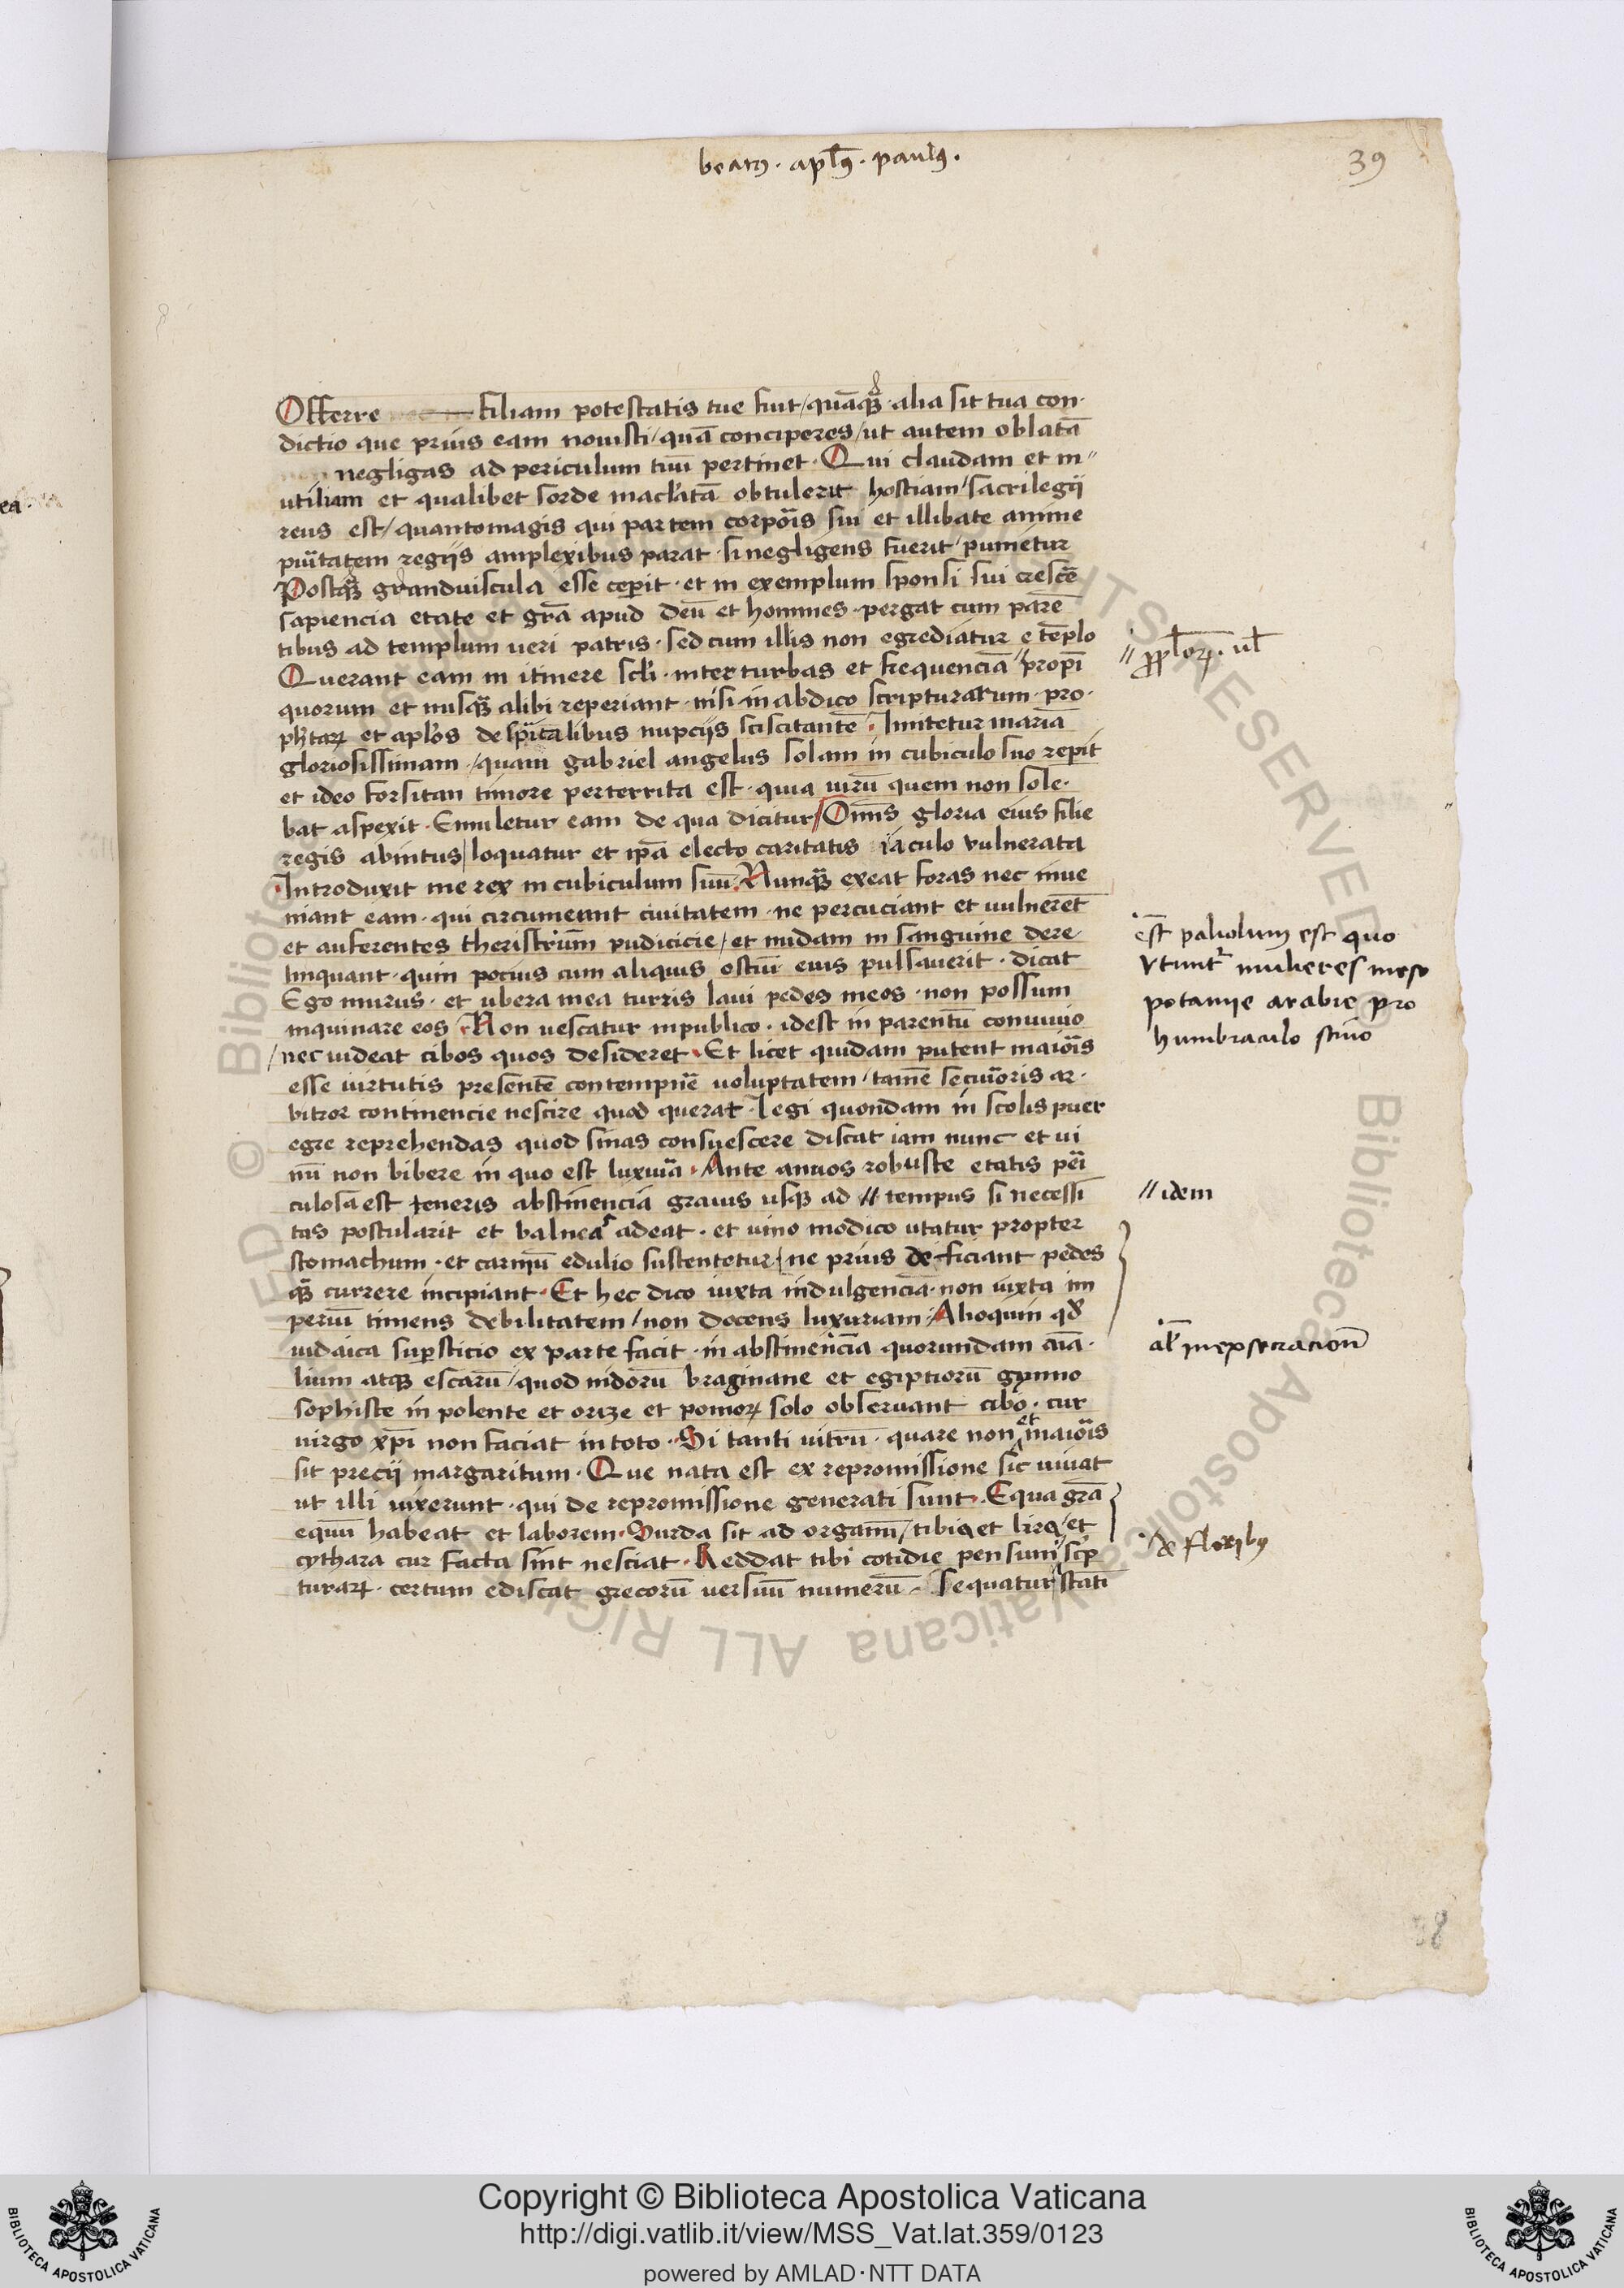 beatꝰ · apl̅ꝰ · paulꝰ ·
39
Offerre filiam potestatis tue fuit / quāqȝ · alia sit tua con·
dictio que prius eam nouisti / quā conciperes / ut autem oblatā
non negligas ad periculum tuū pertinet · Qui claudam et in″
utiliam et qualibet sorde maclatā obtulerit hostiam / sacrilegij
reus est / quantomagis qui partem corpōis sui et illibate anime
puītatem regijs amplexibus parat · si negligens fuerit / punietur
Postqȝ granduiscula esse ceperit · et in exemplum sponsi sui crescē
sapiencia etate et grā apud deū et homines · pergat cum parē
tibus ad templum ueri patris · sed cum illis non egrediatur e tēplo
Querant eam in itinere scl̓i · inter turbas et frequenciā ″ propī
quorum et nusqȝ alibi reperiant · nisi in abdico scripturarum · pro·
phtaꝝ et apl̓os de spi̅talibus nupcijs sciscitantē · Imitetur mariā
gloriosissimam · / quam gabriel angelus solam in cubiculo suo repit
et ideo forsitan timore perterrita est · quia uirū quem non sole·
bat aspexit · Emuletur eam de qua dicitur / Om̅s gloria eius filie
regis abintus / loquatur et ip̄a electo caritatis iaculo vulnerata
Introduxit me rex in cubiculum suū · Nunqȝ exeat foras nec inue
niant eam · qui circumeunt ciuitatem · ne percuciant et uulnerēt
et auferentes theristrūm pudicicie / et nudam in sanguine dere·
linquant · quin pocius cum aliquis ostiū eius pulsauerit · dicat
Ego murus · et ubera mea turris laui pedes meos · non possum
inquinare eos · Non uescatur inpublico · idest in parentū conuiuio
/ nec uideat cibos quos desideret · Et licet quidam putent maiōis
esse uirtutis presentē contempnē uoluptatem / tamē secuīoris ar·
bitror continencie nescire quod querat · Legi quondam in scolis puer
egre reprehendas quod sinas consuescere discat iam nunc et ui
nū non bibere in quo est luxuīa · Ante annos robuste etatis peī
culosā est teneris abstinenciā grauis usqȝ ad // tempus si necessi
tas postularit et balnea adeat · et uino modico utatur propter
stomachum · et carniū edulio sustentetur / ne prius deficiant pedes
qȝ currere incipiant · Et hec dico iuxta indulgenciā · non iuxta im
periū timens debilitatem / non docens luxuriam · Alioquin qd̓
iudaica sup̱sticio ex parte facit · in abstinencia quorundam aīa·
lium atqȝ escarū / quod indorū braginane et egiptiorū gymno
sophiste in polente et orize et pomoꝝ solo obseruant cibo · cur
uirgo xp̄i non faciat in toto · Si tanti uitrū · quare non et maiōis
sit precij margaritum · Que nata est ex repromissione sic uiuat
ut illi uixerunt · qui de repromissione generati sunt · Equa grā
equū habeat et laborem · Surda sit ad organū / tibia et lira / et
cythara cur facta sint nesciat · Reddat tibi cotidie pensum / sc̓p
turaꝝ · certum ediscat grecorū uersuū numerū · Sequatur / statī
// · ul̅
est paliolum est quo
vtunt̓ mulieres meso
potamie arabie pro
humbraculo stiuo
// idem
al̅
de floribꝰ
38
© Biblioteca Apostolica Vaticana ALL RIGHTS RESERVED
Copyright © Biblioteca Apostolica Vaticana
http://digi.vatlib.it/view/MSS_Vat.lat.359/0123
powered by AMLAD·NTT DATA
BIBLIOTECA APOSTOLICA VATICANA
BIBLIOTECA APOSTOLICA VATICANA